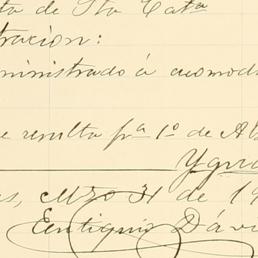 ta de Sta Cata
tracion:
ministrado á acomod
e resulta pa 1o de Ab
Ygna
es, Mzo 31 de 19
Eutiquio Dávi